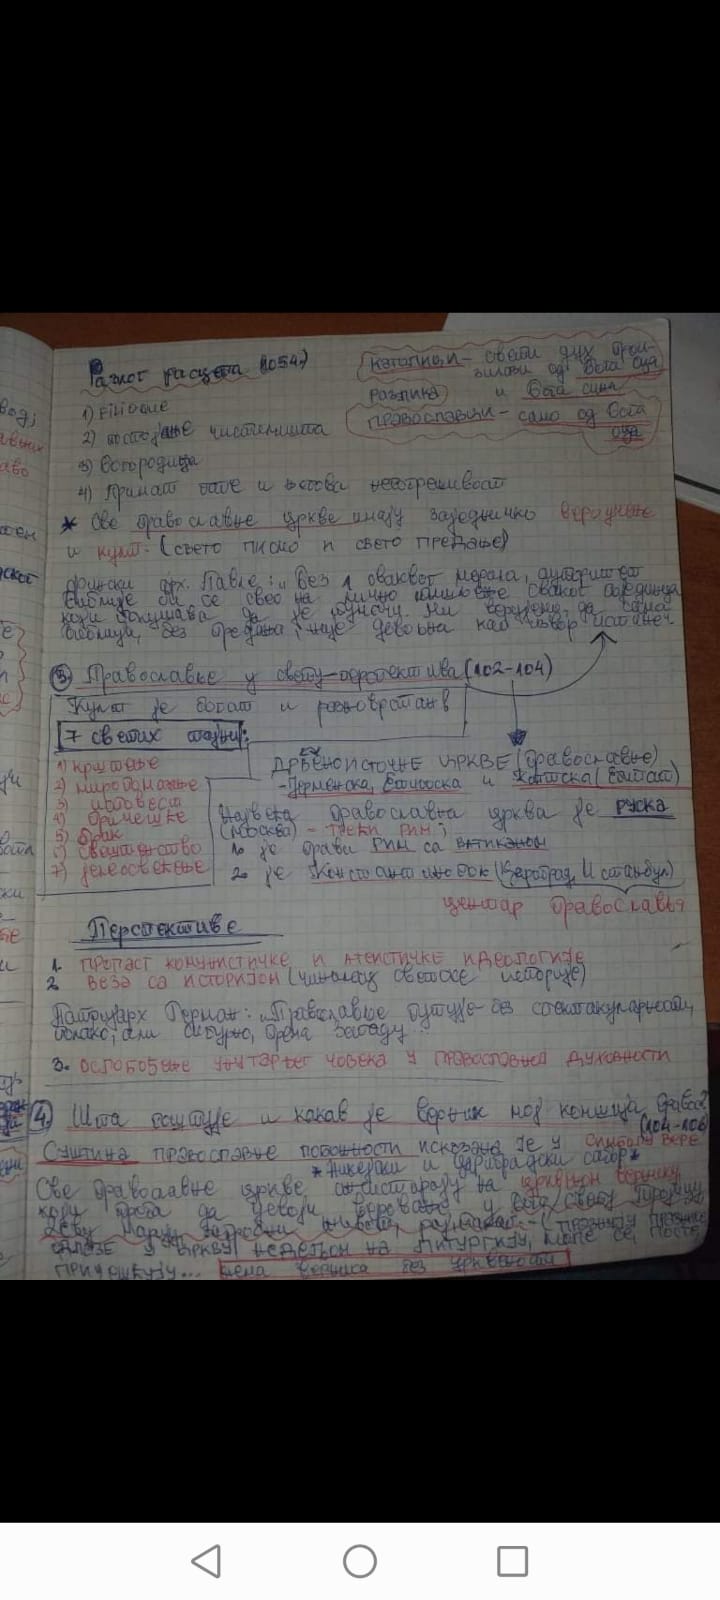 Разлог расцепа (1054.)
католици - свети дух прои-
злази од Бога оца
разлика и Бога сина
православци - само од Бога
оца
1) Filioque
2) постојање чистилишта
3) Богородица
4) Примат папе и његова непогрешивост
* Све православне цркве имају заједничко веродуче
и култ. (свето писмо и свето предање)
Павле: „Без 1 оваквог мерила, ауторитет
Библије би се свео на лично мишљење сваког појединца
који покушава да је тумачи. Ми верујемо да сама
Библија, без предања, није довољна као извор истине."
3) Православље у свету - перспектива (102-104)
Култ је богат и разноврстан
7 светих тајни:
1) крштење
2) миропомазање
3) исповест
4) причешће
5) брак
6) свештенство
7) јелеосвећење
ДРЕВНОИСТОЧНЕ ЦРКВЕ (православне)
- Јерменска, Етиопска и Коптска (Египат)
Највећа православна црква је руска
(Москва) - трећи Рим;
1. је прави Рим са Ватиканом
2. је Константинопољ (Цариград, Истанбул)
центар православља
Перспективе
1. пропаст комунистичке и атеистичке идеологије
2. веза са историјом (чинилац светске историје)
Патријарх Герман: „Православље путује без спектакуларности,
полако, али сигурно, према Западу..."
3. ослобођење унутарњег човека у православној духовности
4. Шта поштује и какав је верник мој комшија
(104-106)
Суштина православне побожности исказана је у симболу вере
* Никејски и Цариградски сабор *
Све православне цркве инсистирају на црквеном вернику,
који треба да гаји веровање у Бога, Свету Тројицу,
Деву Марију, загробни живот,
одлазе у цркву недељом на литургију, моле се, посте
придржују... нема верника без црквености